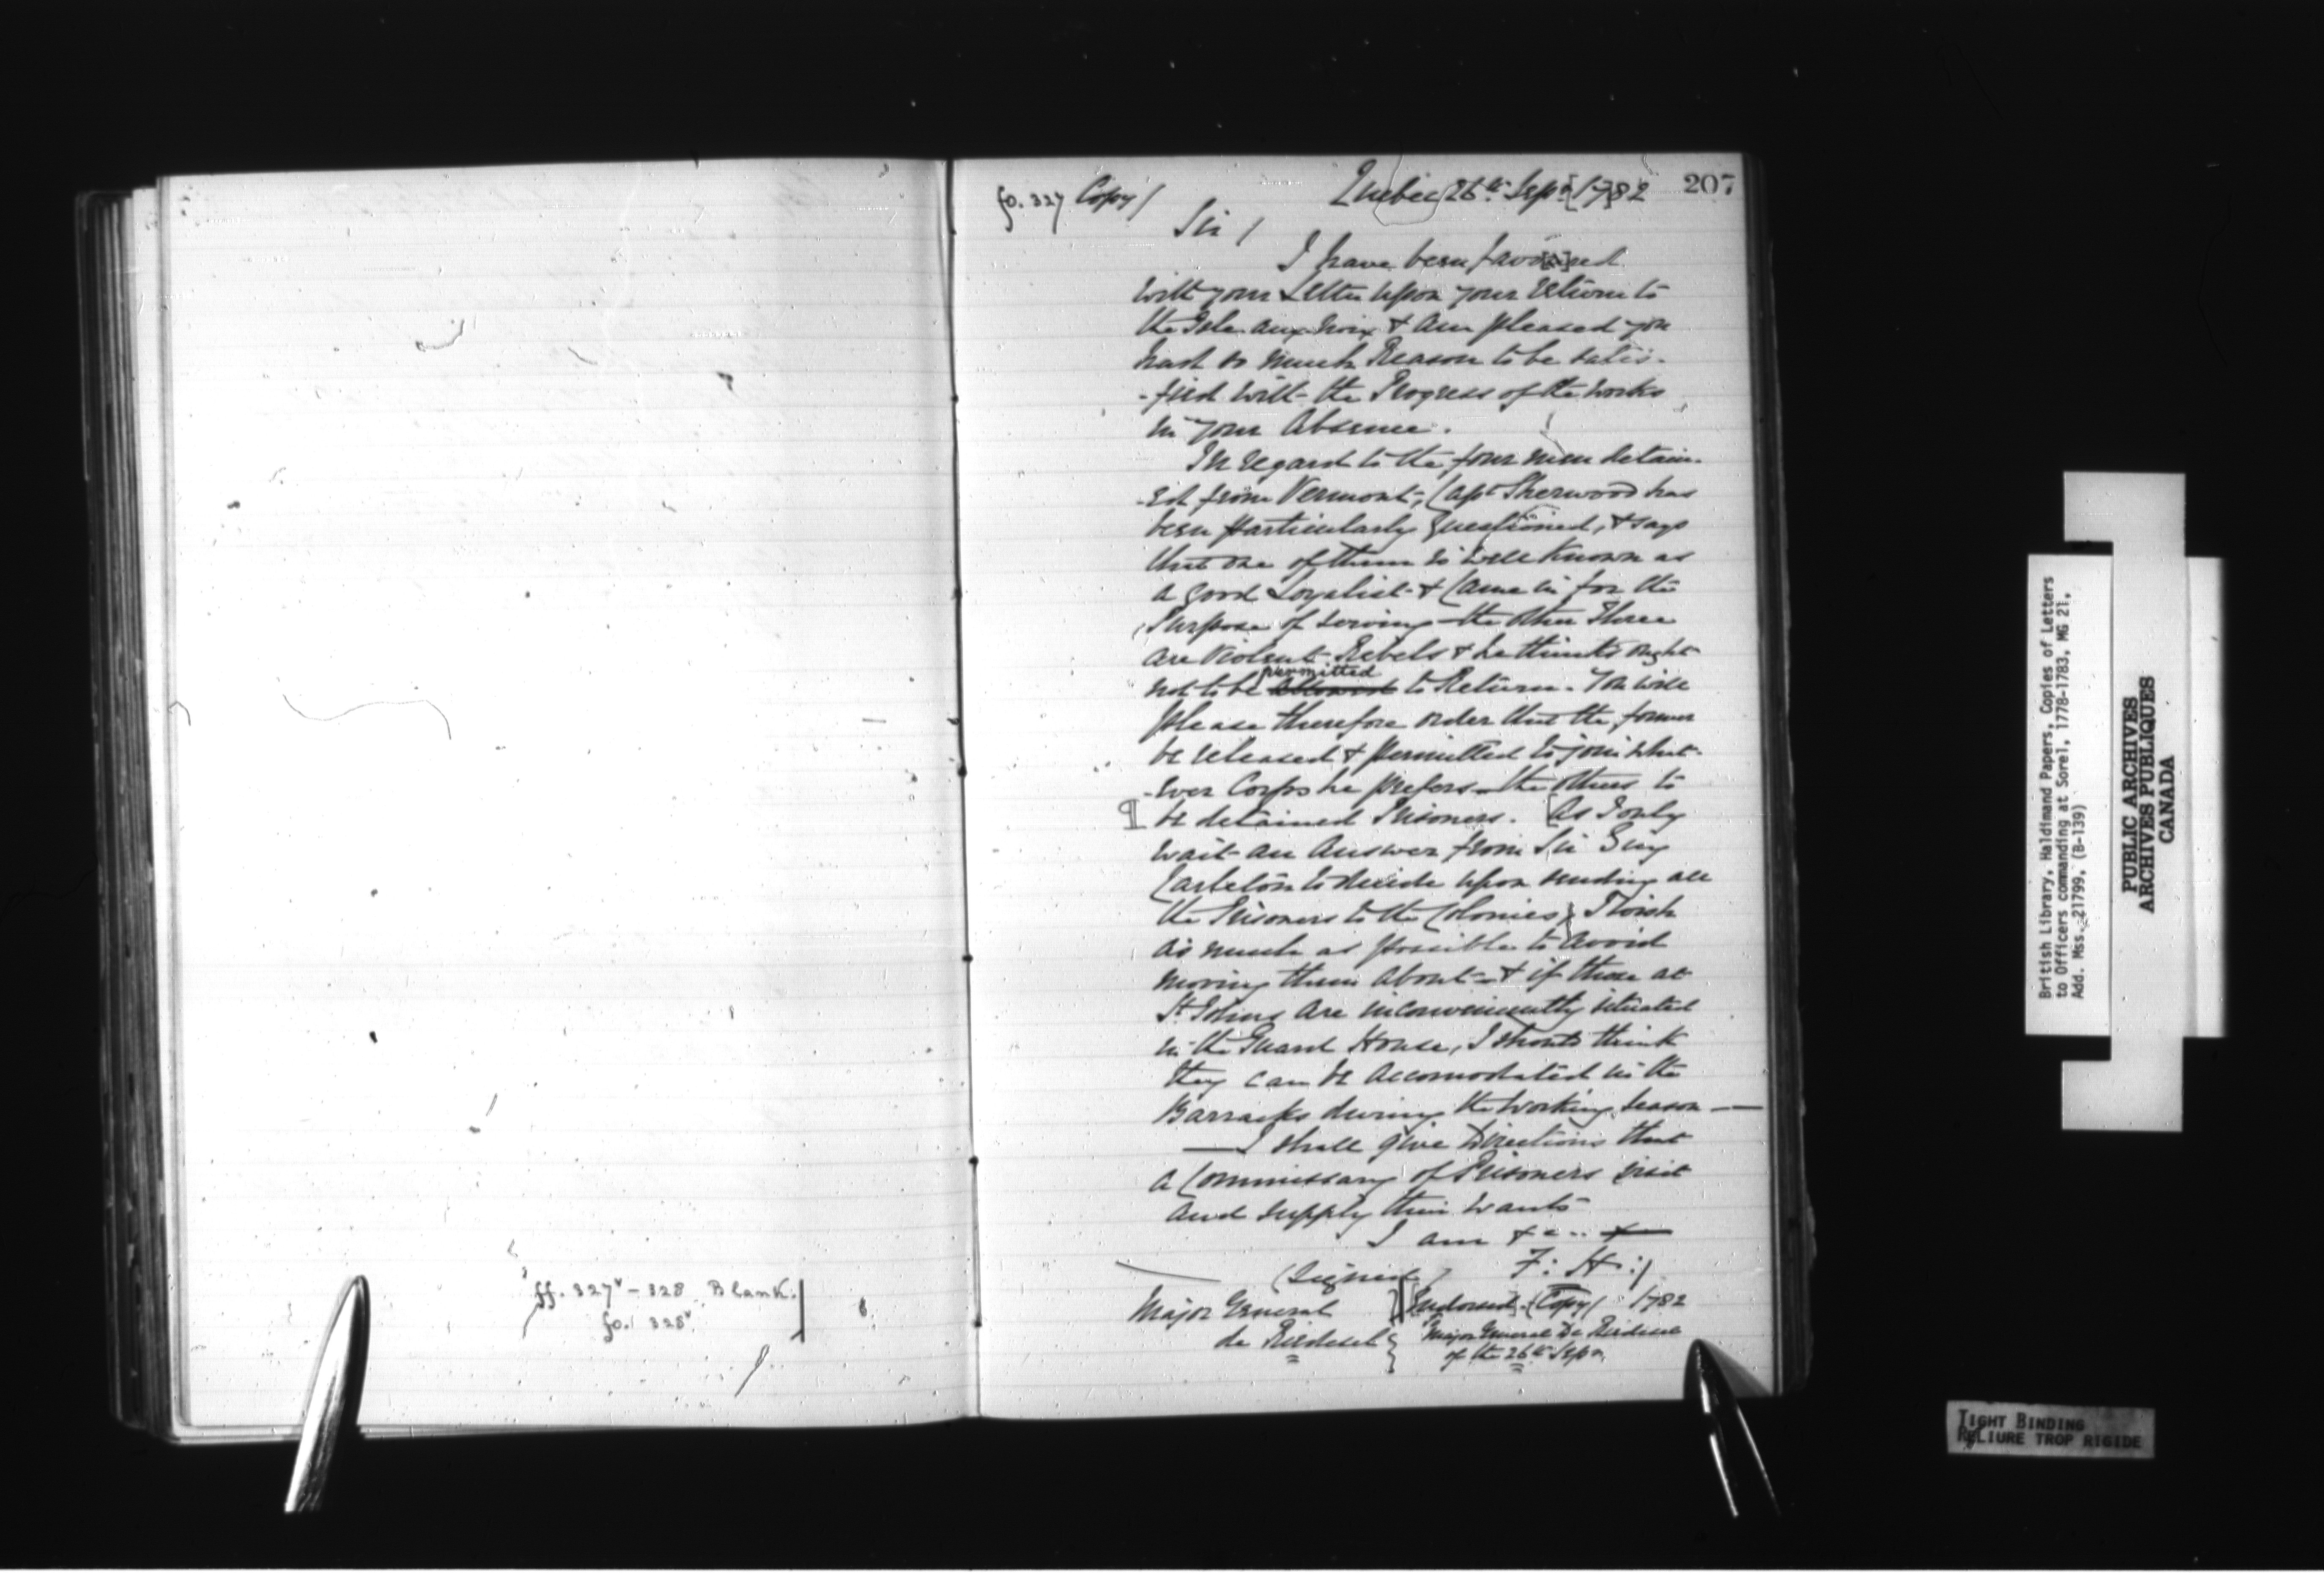 ff. 327v - 328 Blank.
fo. 328v
207
fo. 327 Copy/
Quebec 26th Sepr. [17]82
Sir /
I have been favo[u]red
with your Letter upon your return to
the Isle aux noix & am pleased you
had so much Reason to be satis-
-fied with the Progress of the works
in your Absence.
In regard to the four men detain-
-ed from Vermont, Capt Sherwood has
been particularly Questioned, & says
that one of them is well known as
a good Loyalist & Came in for the
Purpose of serving - the other three
are Violent Rebels & he thinks ought
not to be allowed permitted to Return. You will
please therefore order that the former
be released & permitted to join what-
-ever Corps he prefers - the others to
be detained Prisoners. [As I only
wait an Answer from Sir Guy
Carleton to decide upon sending all
the Prisoners to the Colonies, I wish
as much as possible to avoid
moving them about - & if those at
St. Johns are inconveniently situated
in the Guard House, I should think
they can be Accomodated in the
Barracks during the working Season —
— I shall give Directions that
a Commissary of Prisoners visit
and supply their wants
I am &c..
(Signed) F: H:/
Major General
de Riedesel
[Endorsed]. (Copy/ 1782
Major General De Riedesel
of the 26th Sepr.
British Library, Haldimand Papers, Copies of Letters
to Officers commanding at Sorel, 1778-1783, MG 21,
Add. Mss. 21799, (B-139)
PUBLIC ARCHIVES
ARCHIVES PUBLIQUES
CANADA
TIGHT BINDING
RELIURE TROP RIGIDE